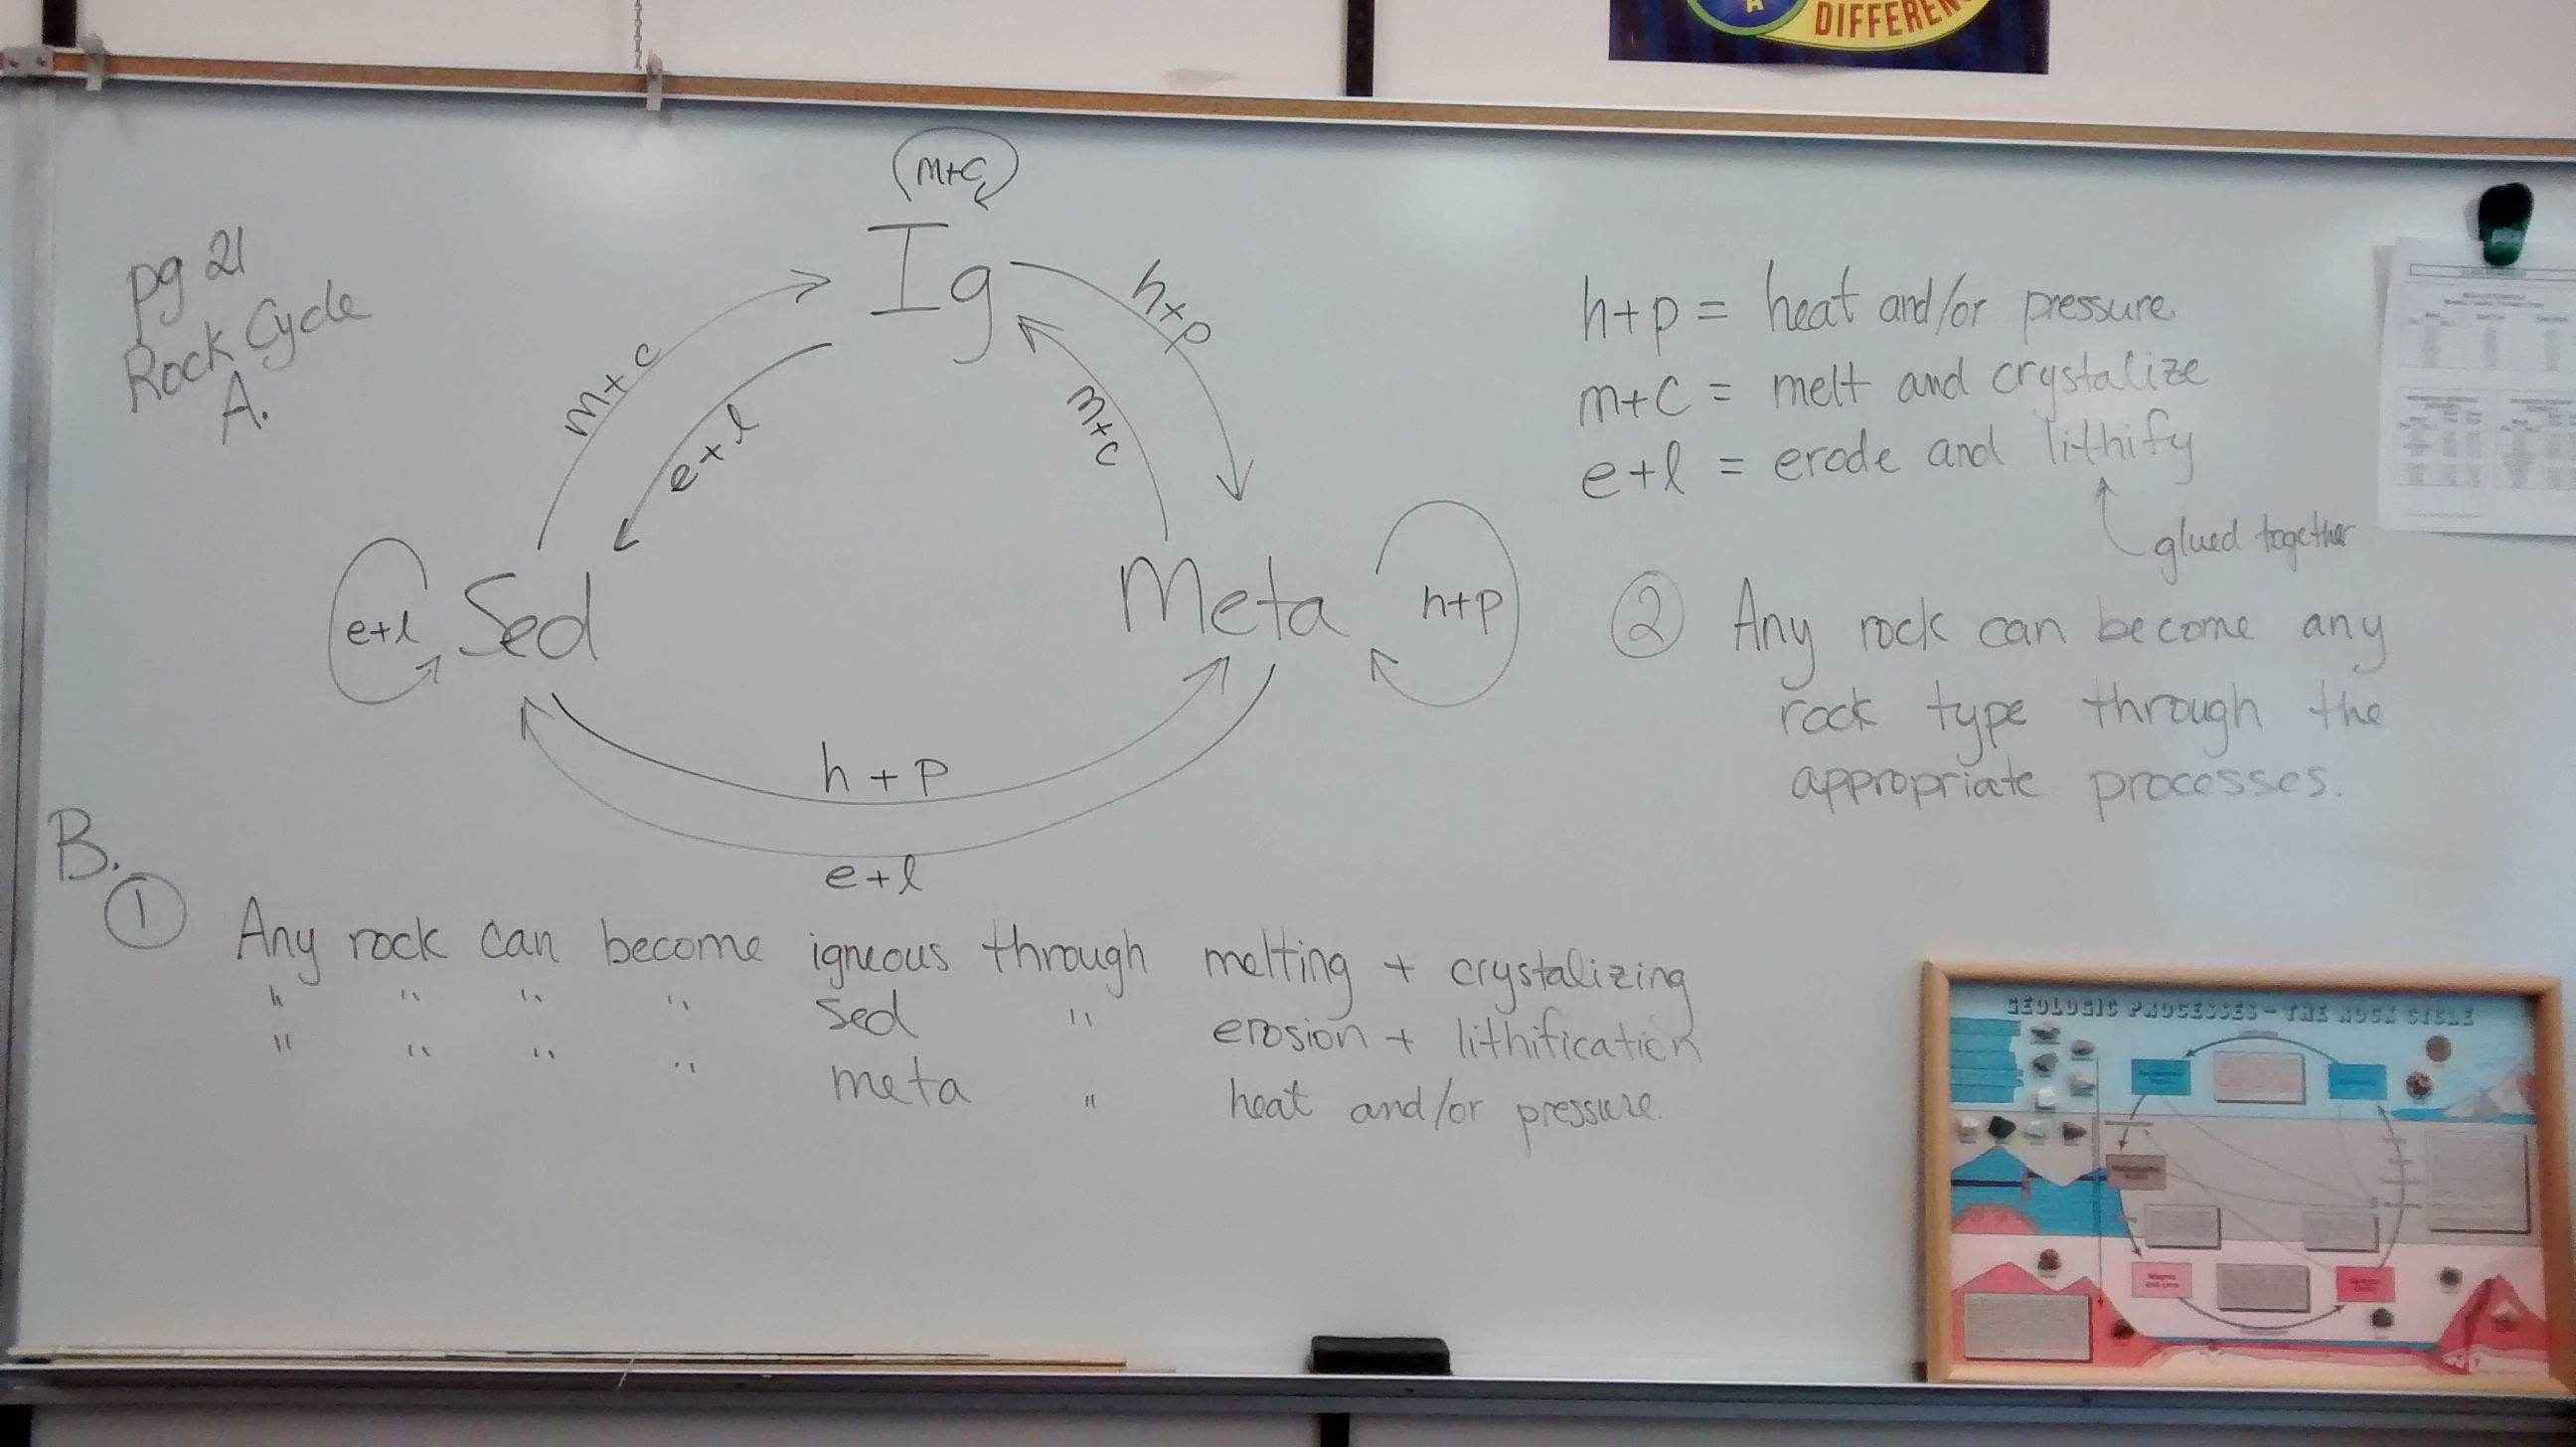 A
DIFFEREN
pg 21
Rock Cycle
A.
m+c
Ig
h+p
m+c
e+l
m+c
Sed
e+l
Meta
h+p
h+p
e+l
h+p = heat and/or pressure
m+c = melt and crystalize
e+l = erode and lithify
glued together
② Any rock can become any
rock type through the
appropriate processes.
B.
① Any rock can become igneous through melting + crystalizing
" " " " sed " erosion + lithification
" " " " meta " heat and/or pressure.
GEOLOGIC PROCESSES - THE ROCK CYCLE